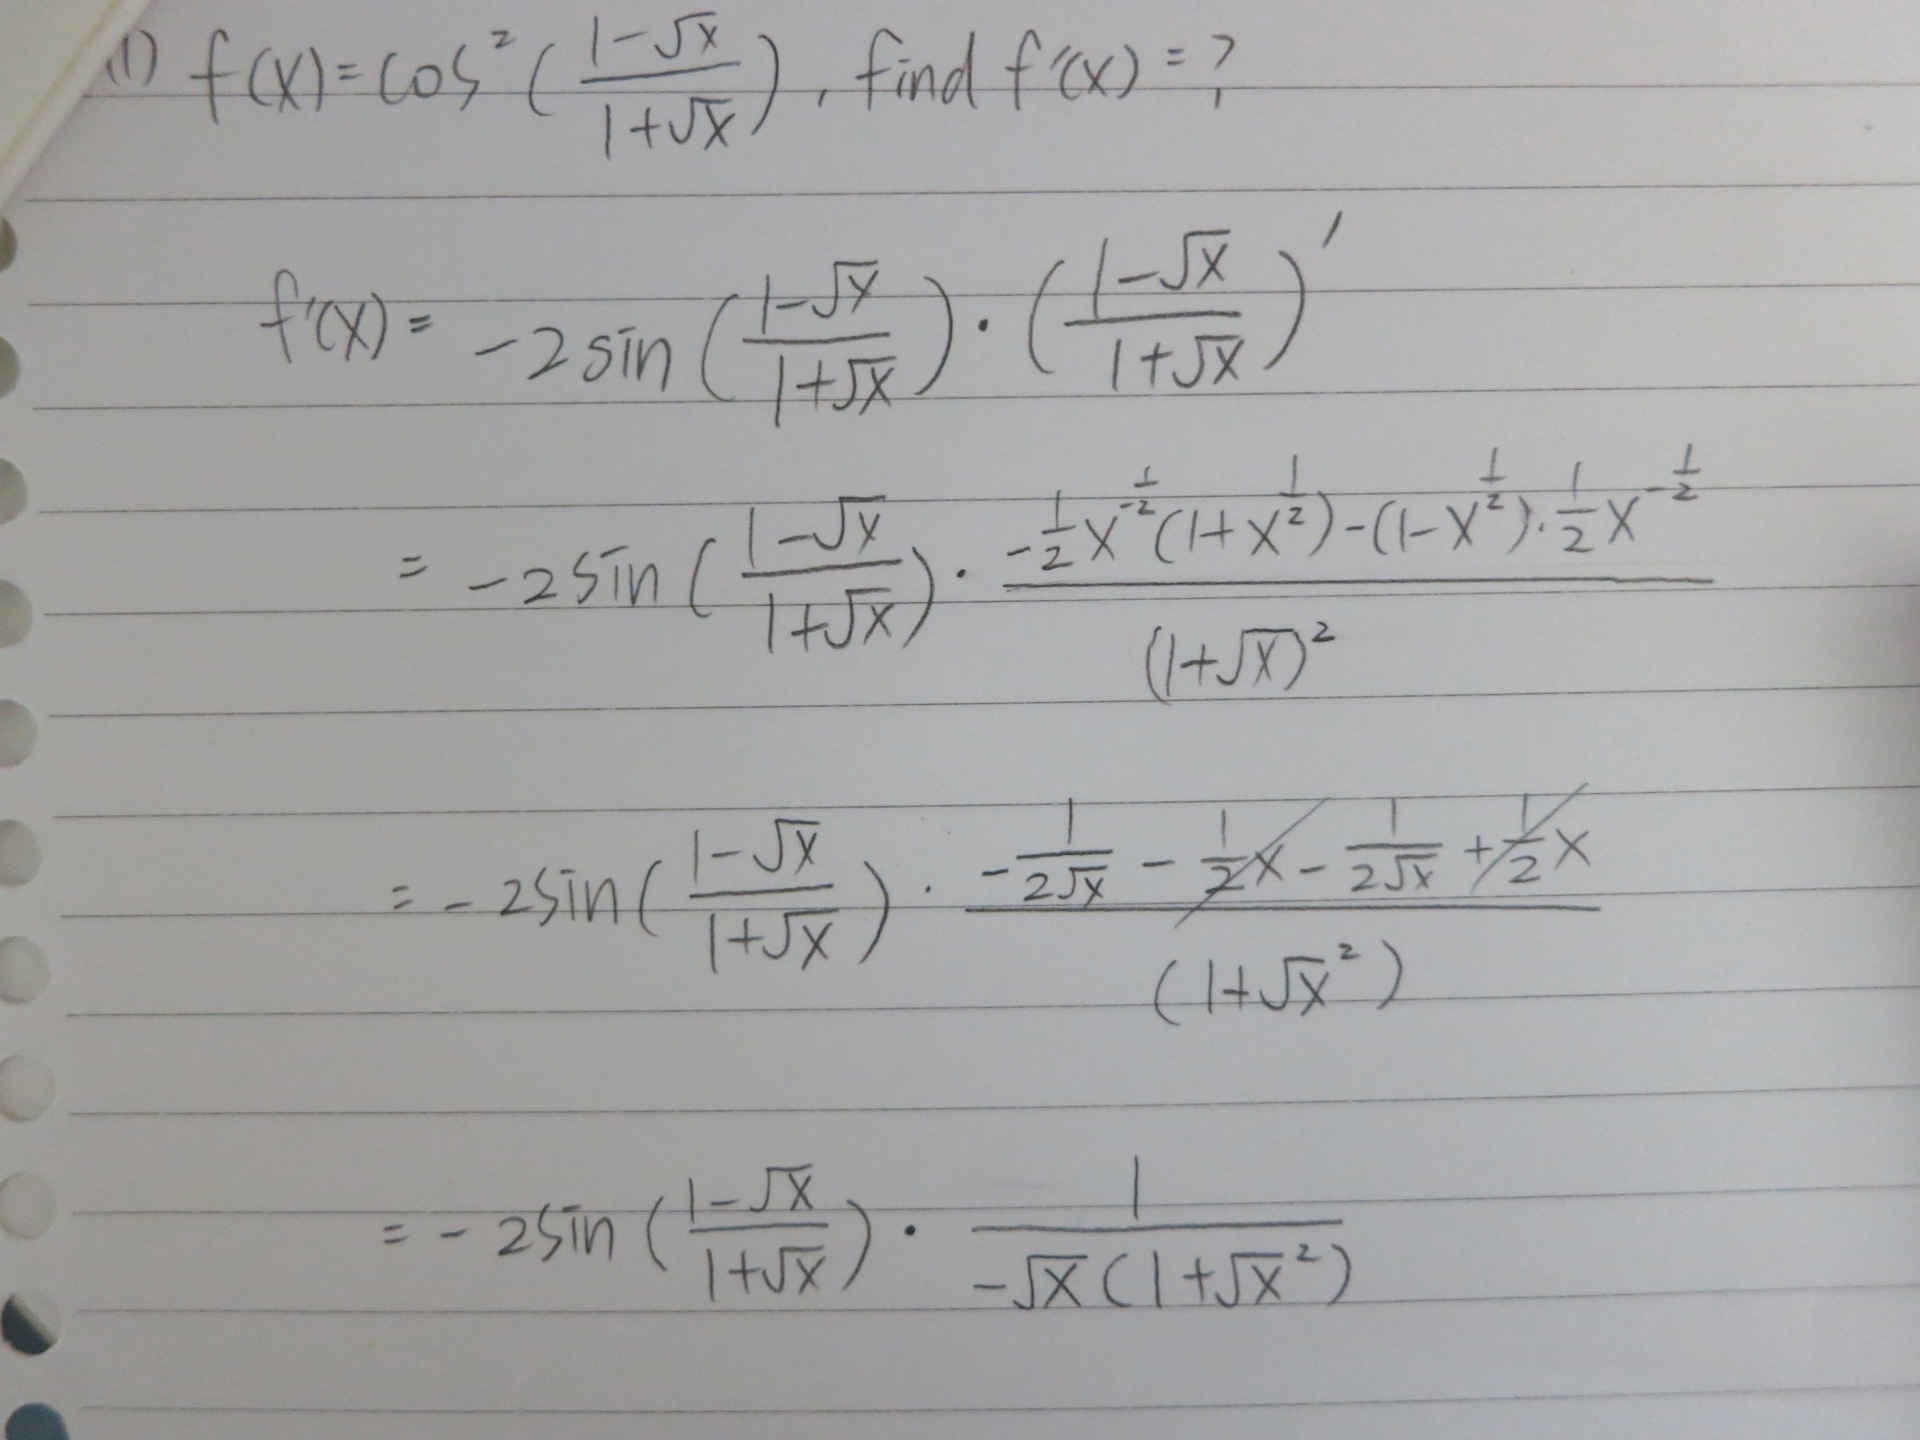 (1) f(x)=cos²((1-√x)/(1+√x)), find f'(x)=?
f'(x)= -2sin((1-√x)/(1+√x))·((1-√x)/(1+√x))'
= -2sin((1-√x)/(1+√x))·(-1/2x^(-1/2)(1+x^(1/2))-(1-x^(1/2))·1/2x^(-1/2))/(1+√x)²
= -2sin((1-√x)/(1+√x))·(-1/(2√x) - 1/2x - 1/(2√x) + 1/2x)/(1+√x²)
= -2sin((1-√x)/(1+√x))·1/(-√x(1+√x²))